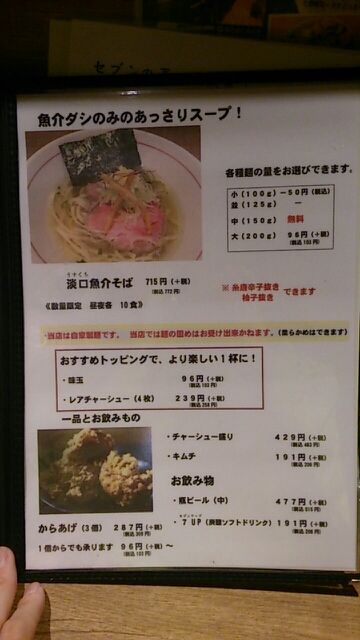 魚介ダシのみのあっさりスープ！
各種麺の量をお選びできます。
小（100g）－50円（税込）
並（125g） ー
中（150g） 無料
大（200g） 96円（+税）
（税込 103 円）
うすくち
淡口魚介そば 715円（+税）
（税込 772 円）
《数量限定 昼夜各 10食》
※ 糸唐辛子抜き
柚子抜き できます
・当店は自家製麺です。 当店では麺の固めはお受け出来かねます。（柔らかめはできます）
おすすめトッピングで、より楽しい！杯に！
・味玉 96円（+税）
（税込 103 円）
・レアチャーシュー（4枚） 239円（+税）
（税込 258 円）
一品とお飲みもの
・チャーシュー盛り 429円（+税）
（税込 463 円）
・キムチ 191円（+税）
（税込 206 円）
お飲み物
・瓶ビール（中） 477円（+税）
（税込 515 円）
からあげ（3個） 287円（+税）
（税込 309 円）
セブンアップ
・7UP（炭酸ソフトドリンク）191円（+税）
（税込 206 円）
1個からでも承ります 96円（+税）～
（税込 103 円）